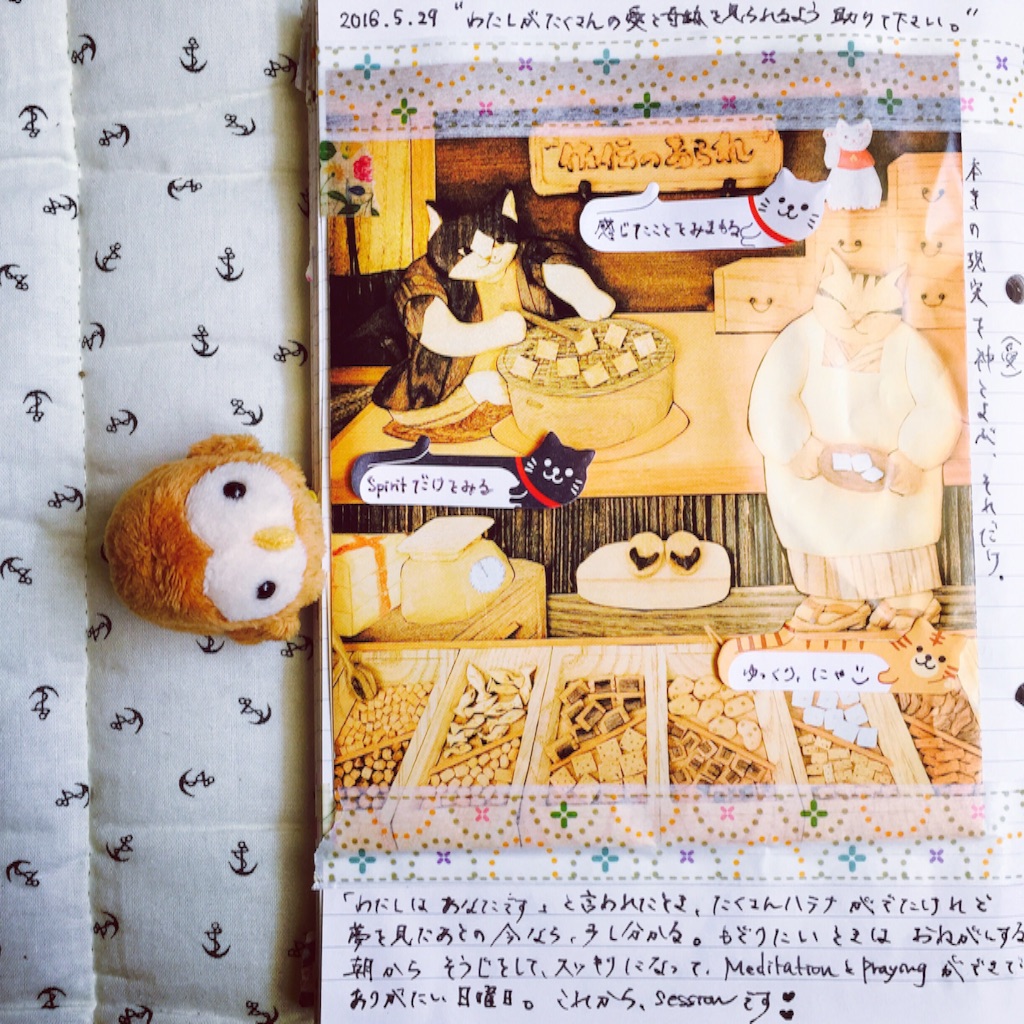 2016.5.29 "わたしがたくさんの愛と奇跡を見られるよう 助けて下さい。"
伝のあられ
感じたことをみまもる
本来の現実を神とよぶ、それだけ。
(愛)
Spiritだけをみる
ゆっくり、にゃ
「わたしは あなたです」と言われたとき、たくさんハテナがでたけれど
夢を見たあとの今なら、少し分かる。もどりたいときは おねがいする
朝から そうじをして、スッキリになって、MeditationとPrayingができて
ありがたい日曜日。これから、sessionです